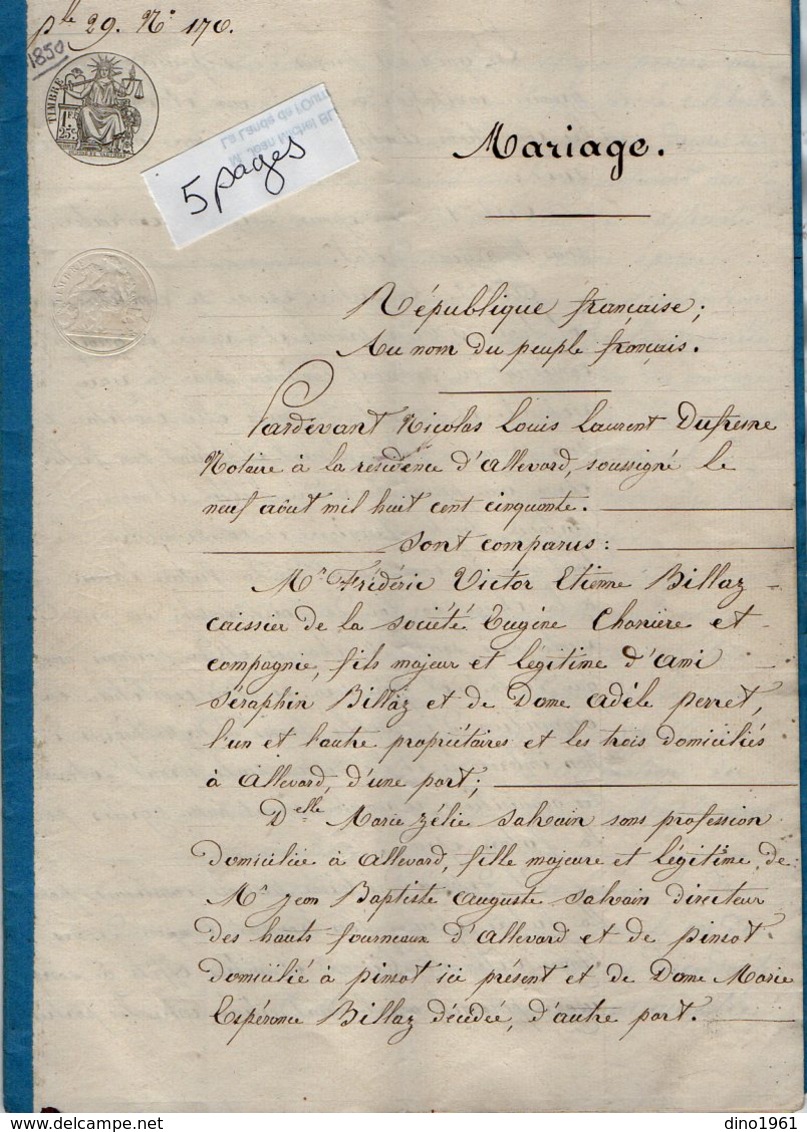 ple 29. N° 170.
1850
TIMBRE
1F
25c
La Lande de l'Ourn
M. Jean Michel BL
5 pages
Mariage.
République française;
Au nom du peuple français.
Pardevant Nicolas Louis Laurent Dufresne
Notaire à la residence d'allevard, soussigné le
neuf août mil huit cent cinquante.
sont comparus :
Mr Frédéric Victor Etienne Billaz
caissier de la société Eugène Charière et
compagnie, fils majeur et légitime d'Ami
séraphin Billaz et de Dame adèle perret,
l'un et l'autre propriétaires et les trois domiciliés
à allevard, d'une part;
Delle Marie zélie salvain sans profession
domiciliée à allevard, fille majeure et légitime de
Mr jean Baptiste auguste salvain directeur
des hauts fourneaux d'allevard et de pinsot
domicilié à pinsot ici présent et de Dame Marie
Espérance Billaz décédée, d'autre part.
www.delcampe.net
dino1961